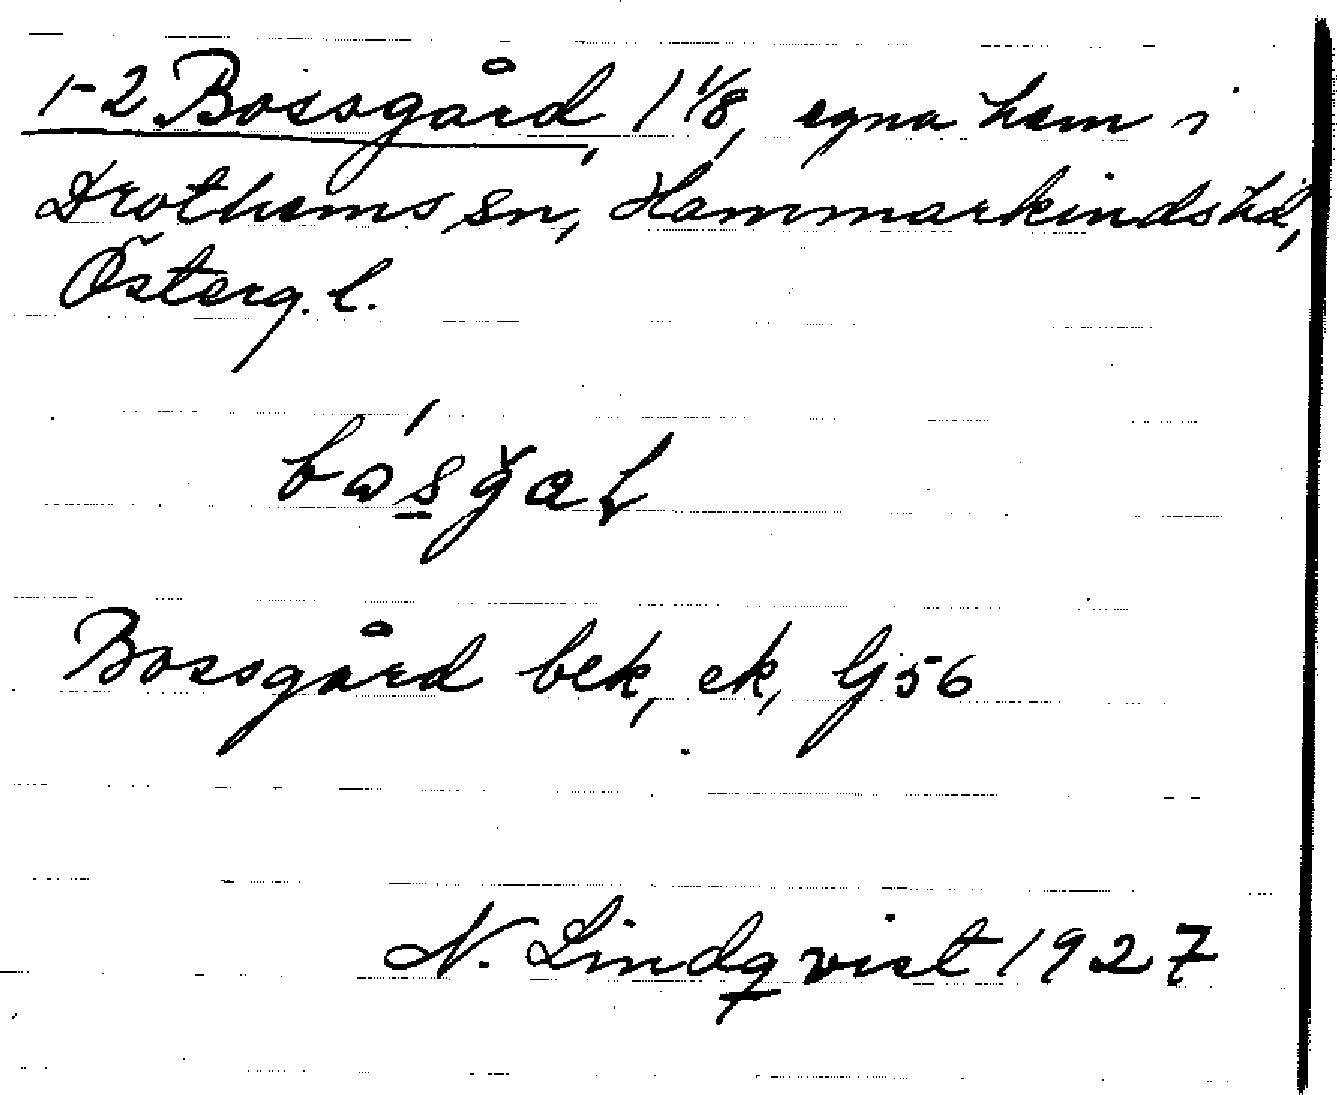 1-2 Bossgård, 1 1/8, egna hem i
Drothems sn, Hammarkinds hd,
Österg. l.
Bossgård bek, ek, Gj 56
N. Lindqvist 1927